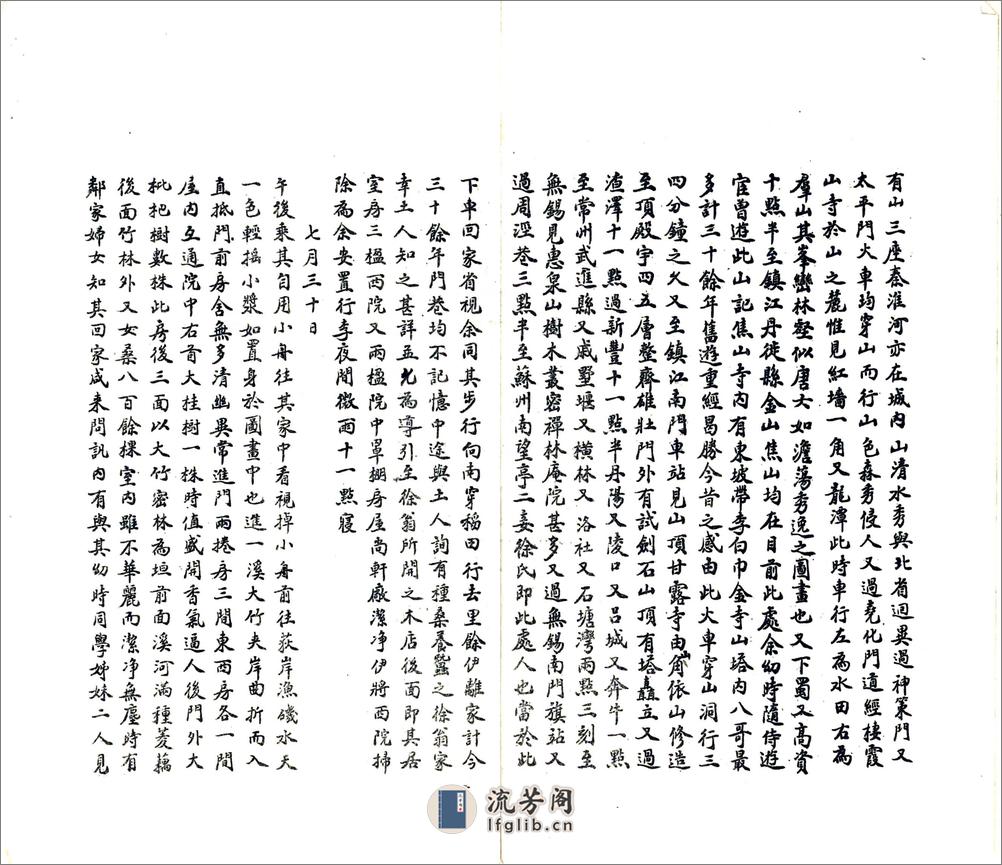 有山三座秦淮河亦在城内山清水秀與北省迥異過神策門又
太平門火車均穿山而行山色森秀侵人又過堯化門道經棲霞
山寺於山之麓惟見紅墻一角又龍潭此時車行左為水田右為
羣山其峯巒林壑似唐大如澹蕩秀逸之圖畫也又下蜀又高資
十點半至鎮江丹徒縣金山焦山均在目前此處余幼時隨侍遊
宦曾遊此山記焦山寺内有東坡帶李白巾金寺山塔内八哥最
多計三十餘年舊遊重經曷勝今昔之感由此火車穿山洞行三
四分鐘之久又至鎮江南門車站見山頂甘露寺由山角依山修造
至頂殿宇四五層整齊雄壯門外有試劍石山頂有塔矗立又過
渣澤十一點過新豐十一點半丹陽又陵口又呂城又奔牛一點
至常州武進縣又戚墅堰又橫林又洛社又石塘灣兩點三刻至
無錫見惠泉山樹木叢密禪林庵院甚多又過無錫南門旗站又
過周涇巷三點半至蘇州南望亭二妾徐氏即此處人也當於此
下車回家省視余同其步行向南穿稻田行去里餘伊離家計今
三十餘年門巷均不記憶中途與土人詢有種桑養蠶之徐翁家
幸土人知之甚詳並允為導引至徐翁所開之木店後面即其居
室房三楹西院又兩楹院中罩棚房屋尚軒廠潔净伊將西院掃
除為余安置行李夜間微雨十一點寢
七月三十日
午後乘其自用小舟往其家中看視掉小舟前往荻岸漁磯水天
一色輕搖小漿如置身於圖畫中也進一溪大竹夾岸曲折而入
直抵門前房舍無多清幽異常進門兩捲房三間東西房各一間
屋内互通院中右首大桂樹一株時值盛開香氣逼人後門外大
枇杷樹數株此房後三面以大竹密林為垣前面溪河滿種菱藕
後面竹林外又女桑八百餘棵室内雖不華麗而潔净無塵時有
鄰家婦女知其回家咸來問訊内有與其幼時同學姊妹二人見
流芳阁
lfglib.cn